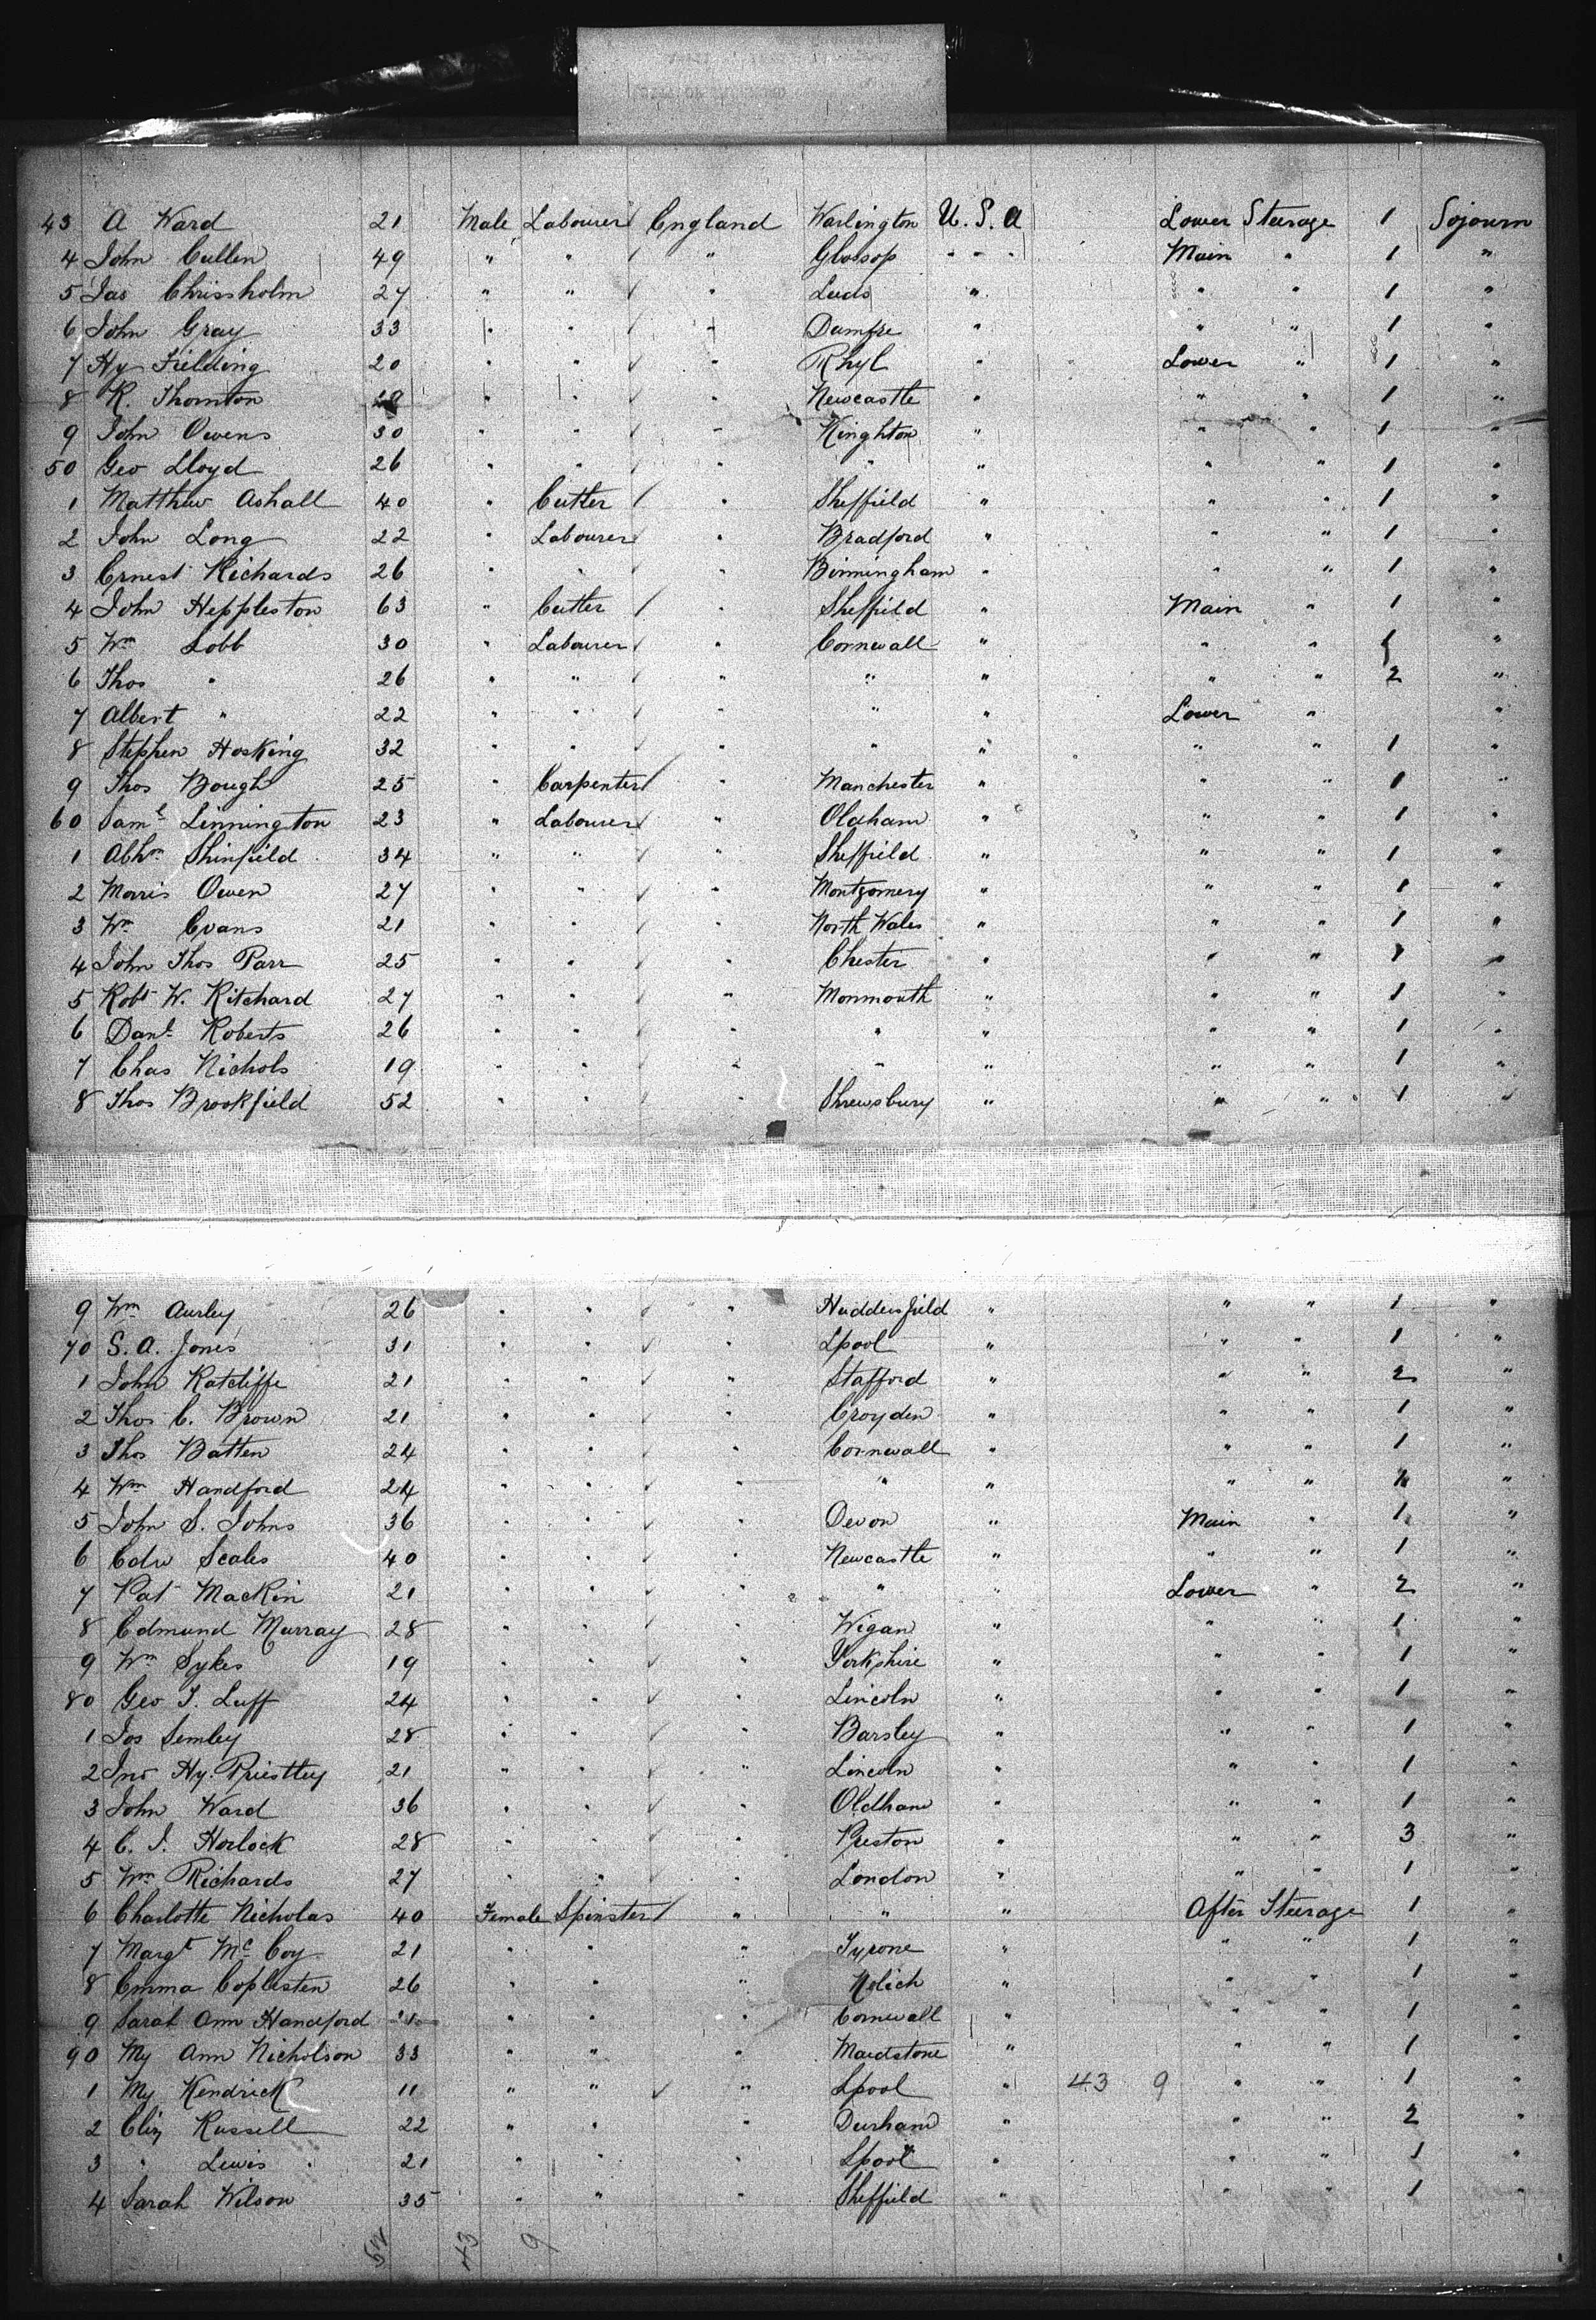 43 A Ward 21 Male Labourer England Warlington U.S.A Lower Steerage 1 Sojourn
4 John Cullen 49 " " " Glossop " " " Main " 1 "
5 Jas Chrissholm 27 " " " Leeds " " " 1 "
6 John Gray 33 " " " Damfre " " " 1 "
7 Hy Fielding 20 " " " Rhyl " Lower " 1 "
8 R. Thornton " " " Newcastle " " " 1 "
9 John Owens 30 " " " Kinghton " " " 1 "
50 Geo Lloyd 26 " " " " " " " 1 "
1 Matthew Ashall 40 " Cutler " Sheffield " " " 1 "
2 John Long 22 " Labourer " Bradford " " " 1 "
3 Ernest Richards 26 " " " Birmingham " " " 1 "
4 John Heppleston 63 " Cutler " Sheffield " Main " 1 "
5 Wm Lobb 30 " Labourer " Cornwall " " " 1 "
6 Thos " 26 " " " " " " " 2 "
7 Albert " 22 " " " " " Lower " "
8 Stephen Hosking 32 " " " " " " " 1 "
9 Thos Bough 25 " Carpenter " Manchester " " " 1 "
60 Saml Linnington 23 " Labourer " Oldham " " " 1 "
1 Abhm Shinfield 34 " " " Sheffield " " " 1 "
2 Morris Owen 27 " " " Montgomery " " " 1 "
3 Wm Evans 21 " " " North Wales " " " 1 "
4 John Thos Parr 25 " " " Chester " " " 1 "
5 Robt W. Ritchard 27 " " " Monmouth " " " 1 "
6 Danl Roberts 26 " " " " " " " 1 "
7 Chas Nichols 19 " " " " " " " 1 "
8 Thos Brookfield 52 " " " Shrewsbury " " " 1 "
9 Wm Aurley 26 " " " Huddersfield " " " 1 "
70 S. A. Jones 31 " " " Lpool " " " 1 "
1 John Ratcliffe 21 " " " Stafford " " " 2 "
2 Thos C. Brown 21 " " " Croyden " " " 1 "
3 Thos Batten 24 " " " Cornwall " " " 1 "
4 Wm Handford 24 " " " " " " " "
5 John S. Johns 36 " " " Devon " Main " 1 "
6 Edw Scales 40 " " " Newcastle " " " 1 "
7 Pat MacKin 21 " " " " " Lower " 2 "
8 Edmund Murray 28 " " " Wigan " " " 1 "
9 Wm Sykes 19 " " " Yorkshire " " " 1 "
80 Geo T. Luff 24 " " " Lincoln " " " 1 "
1 Jos Semley 28 " " " Barsley " " " 1 "
2 Jno Hy. Priestley 21 " " " Lincoln " " " 1 "
3 John Ward 36 " " " Oldham " " " 1 "
4 C. J. Horlock 28 " " " Preston " " " 3 "
5 Wm Richards 27 " " " London " " " 1 "
6 Charlotte Nicholas 40 Female Spinster " " " After Steerage 1 "
7 Margt McCoy 21 " " " Tyrone " " " 1 "
8 Emma Coplesten 26 " " " " " " 1 "
9 Sarah Ann Handford " " " Cornwall " " " 1 "
90 My Ann Nicholson 33 " " " Maidstone " " " 1 "
1 My Kendrick 11 " " " Lpool " 43 9 " " 1 "
2 Eliz Russell 22 " " " Durham " " " 2 "
3 " Lewis 21 " " " Lpool " " " 1 "
4 Sarah Wilson 35 " " " Sheffield " " " 1 "
43 9